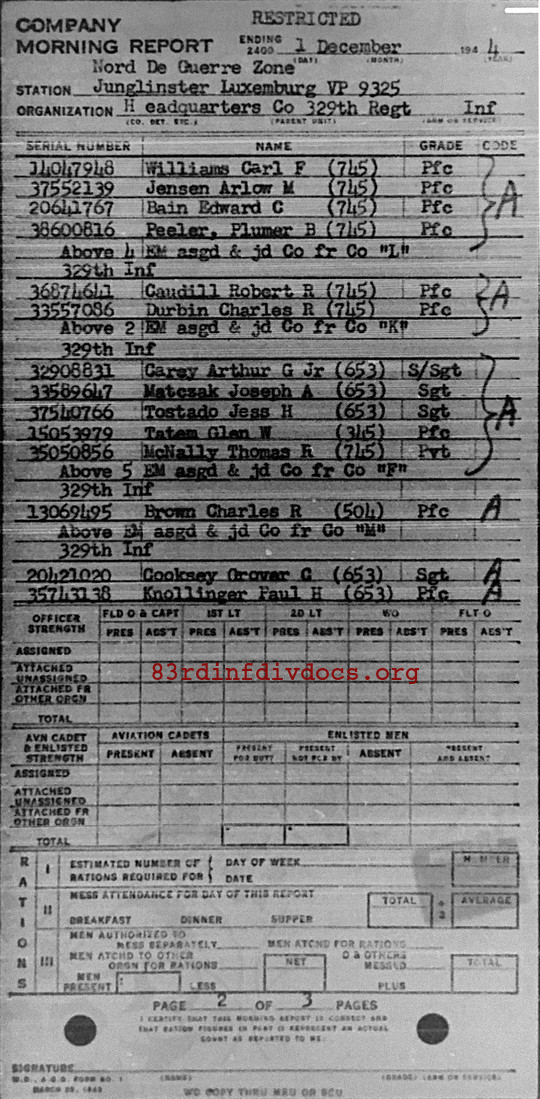 RESTRICTED
COMPANY
MORNING REPORT ENDING 2400 1 December 1944
(DAY) (MONTH) (YEAR)
Nord De Guerre Zone
STATION Junglinster Luxemburg VP 9325
ORGANIZATION H eadquarters Co 329th Regt Inf
(CO. DET. ETC.) (PARENT UNIT) (ARM OR SERVICE)
SERIAL NUMBER NAME GRADE CODE
14047948 Williams Carl F (745) Pfc
37552139 Jensen Arlow M (745) Pfc
20641767 Bain Edward C (745) Pfc A
38600816 Peeler, Plumer B (745) Pfc
Above 4 EM asgd & jd Co fr Co "L"
329th Inf
36874641 Caudill Robert R (745) Pfc A
33557086 Durbin Charles R (745) Pfc
Above 2 EM asgd & jd Co fr Co "K"
329th Inf
32908831 Carey Arthur G Jr (653) S/Sgt
33589647 Matczak Joseph A (653) Sgt
37540766 Tostado Jess H (653) Sgt A
15053979 Tatem Glen W (345) Pfc
35050856 McNally Thomas R (745) Pvt
Above 5 EM asgd & jd Co fr Co "F"
329th Inf
13069495 Brown Charles R (504) Pfc A
Above EM asgd & jd Co fr Co "M"
329th Inf
20421020 Cooksey Grover C (653) Sgt A
35743138 Knollinger Paul H (653) Pfc A
OFFICER STRENGTH FLD O & CAPT 1ST LT 2D LT WO FLT O
PRES ABS'T PRES ABS'T PRES ABS'T PRES ABS'T PRES ABS'T
ASSIGNED
ATTACHED UNASSIGNED
83rdinfdivdocs.org
ATTACHED FR OTHER ORGN
TOTAL
AVN CADET & ENLISTED STRENGTH AVIATION CADETS ENLISTED MEN
PRESENT ABSENT PRESENT FOR DUTY PRESENT NOT FOR DY ABSENT PRESENT AND ABSENT
ASSIGNED
ATTACHED UNASSIGNED
ATTACHED FR OTHER ORGN
TOTAL
RATIONS
I ESTIMATED NUMBER OF RATIONS REQUIRED FOR { DAY OF WEEK DATE NUMBER
II MESS ATTENDANCE FOR DAY OF THIS REPORT TOTAL ÷ 3 AVERAGE
BREAKFAST DINNER SUPPER
III MEN AUTHORIZED TO MESS SEPARATELY MEN ATCHD FOR RATIONS
MEN ATCHD TO OTHER ORGN FOR RATIONS NET O & OTHERS MESSED TOTAL
MEN PRESENT LESS PLUS
PAGE 2 OF 3 PAGES
I CERTIFY THAT THIS MORNING REPORT IS CORRECT AND
THAT RATION FIGURES IN PART III REPRESENT AN ACTUAL
COUNT AS REPORTED TO ME:
SIGNATURE
W.D., A.G.O. FORM NO. 1 (NAME) (GRADE) (ARM OR SERVICE)
WD COPY THRU MRU OR SCU